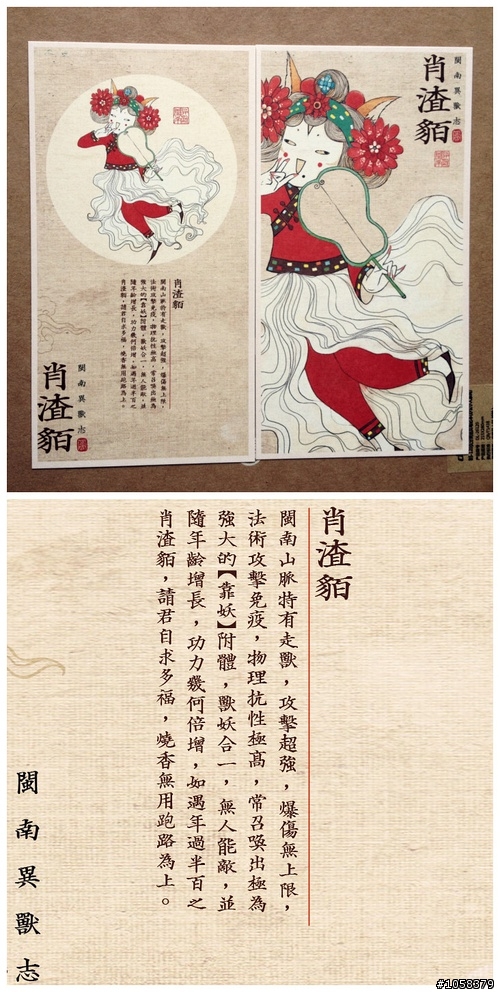 肖渣貊
閩南異獸志
肖渣貊
閩南山脈特有走獸，攻擊超強，爆傷無上限，
法術攻擊免疫，物理抗性極高，常召喚出極為
強大的【靠妖】附體，獸妖合一，無人能敵，並
隨年齡增長，功力幾何倍增，如遇年過半百之
肖渣貊，請君自求多福，燒香無用跑路為上。
肖渣貊
閩南異獸志
肖渣貊
閩南山脈特有走獸，攻擊超強，爆傷無上限，
法術攻擊免疫，物理抗性極高，常召喚出極為
強大的【靠妖】附體，獸妖合一，無人能敵，並
隨年齡增長，功力幾何倍增，如遇年過半百之
肖渣貊，請君自求多福，燒香無用跑路為上。
閩南異獸志
#1058379